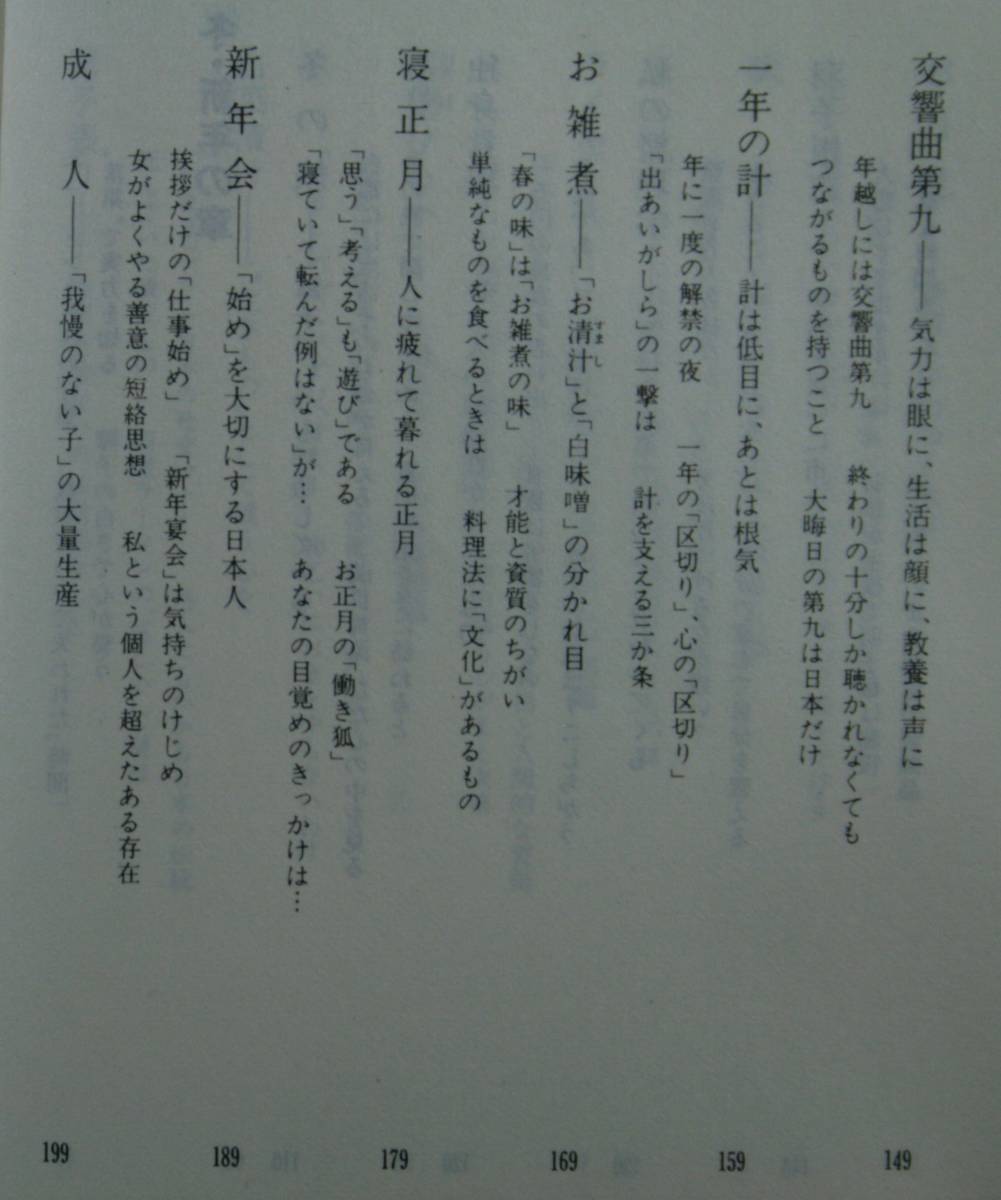 交響曲第九――気力は眼に、生活は顔に、教養は声に 149
年越しには交響曲第九　終わりの十分しか聴かれなくても
つながるものを持つこと　大晦日の第九は日本だけ
一年の計――計は低目に、あとは根気 159
年に一度の解禁の夜　一年の「区切り」、心の「区切り」
「出あいがしら」の一撃は　計を支える三か条
お雑煮――「お清汁」と「白味噌」の分かれ目 169
すまし
「春の味」は「お雑煮の味」　才能と資質のちがい
単純なものを食べるときは　料理法に「文化」があるもの
寝正月――人に疲れて暮れる正月 179
「思う」「考える」も「遊び」である　お正月の「働き狐」
「寝ていて転んだ例はない」が…　あなたの目覚めのきっかけは…
新年会――「始め」を大切にする日本人 189
挨拶だけの「仕事始め」　「新年宴会」は気持ちのけじめ
女がよくやる善意の短絡思想　私という個人を超えたある存在
成人――「我慢のない子」の大量生産 199